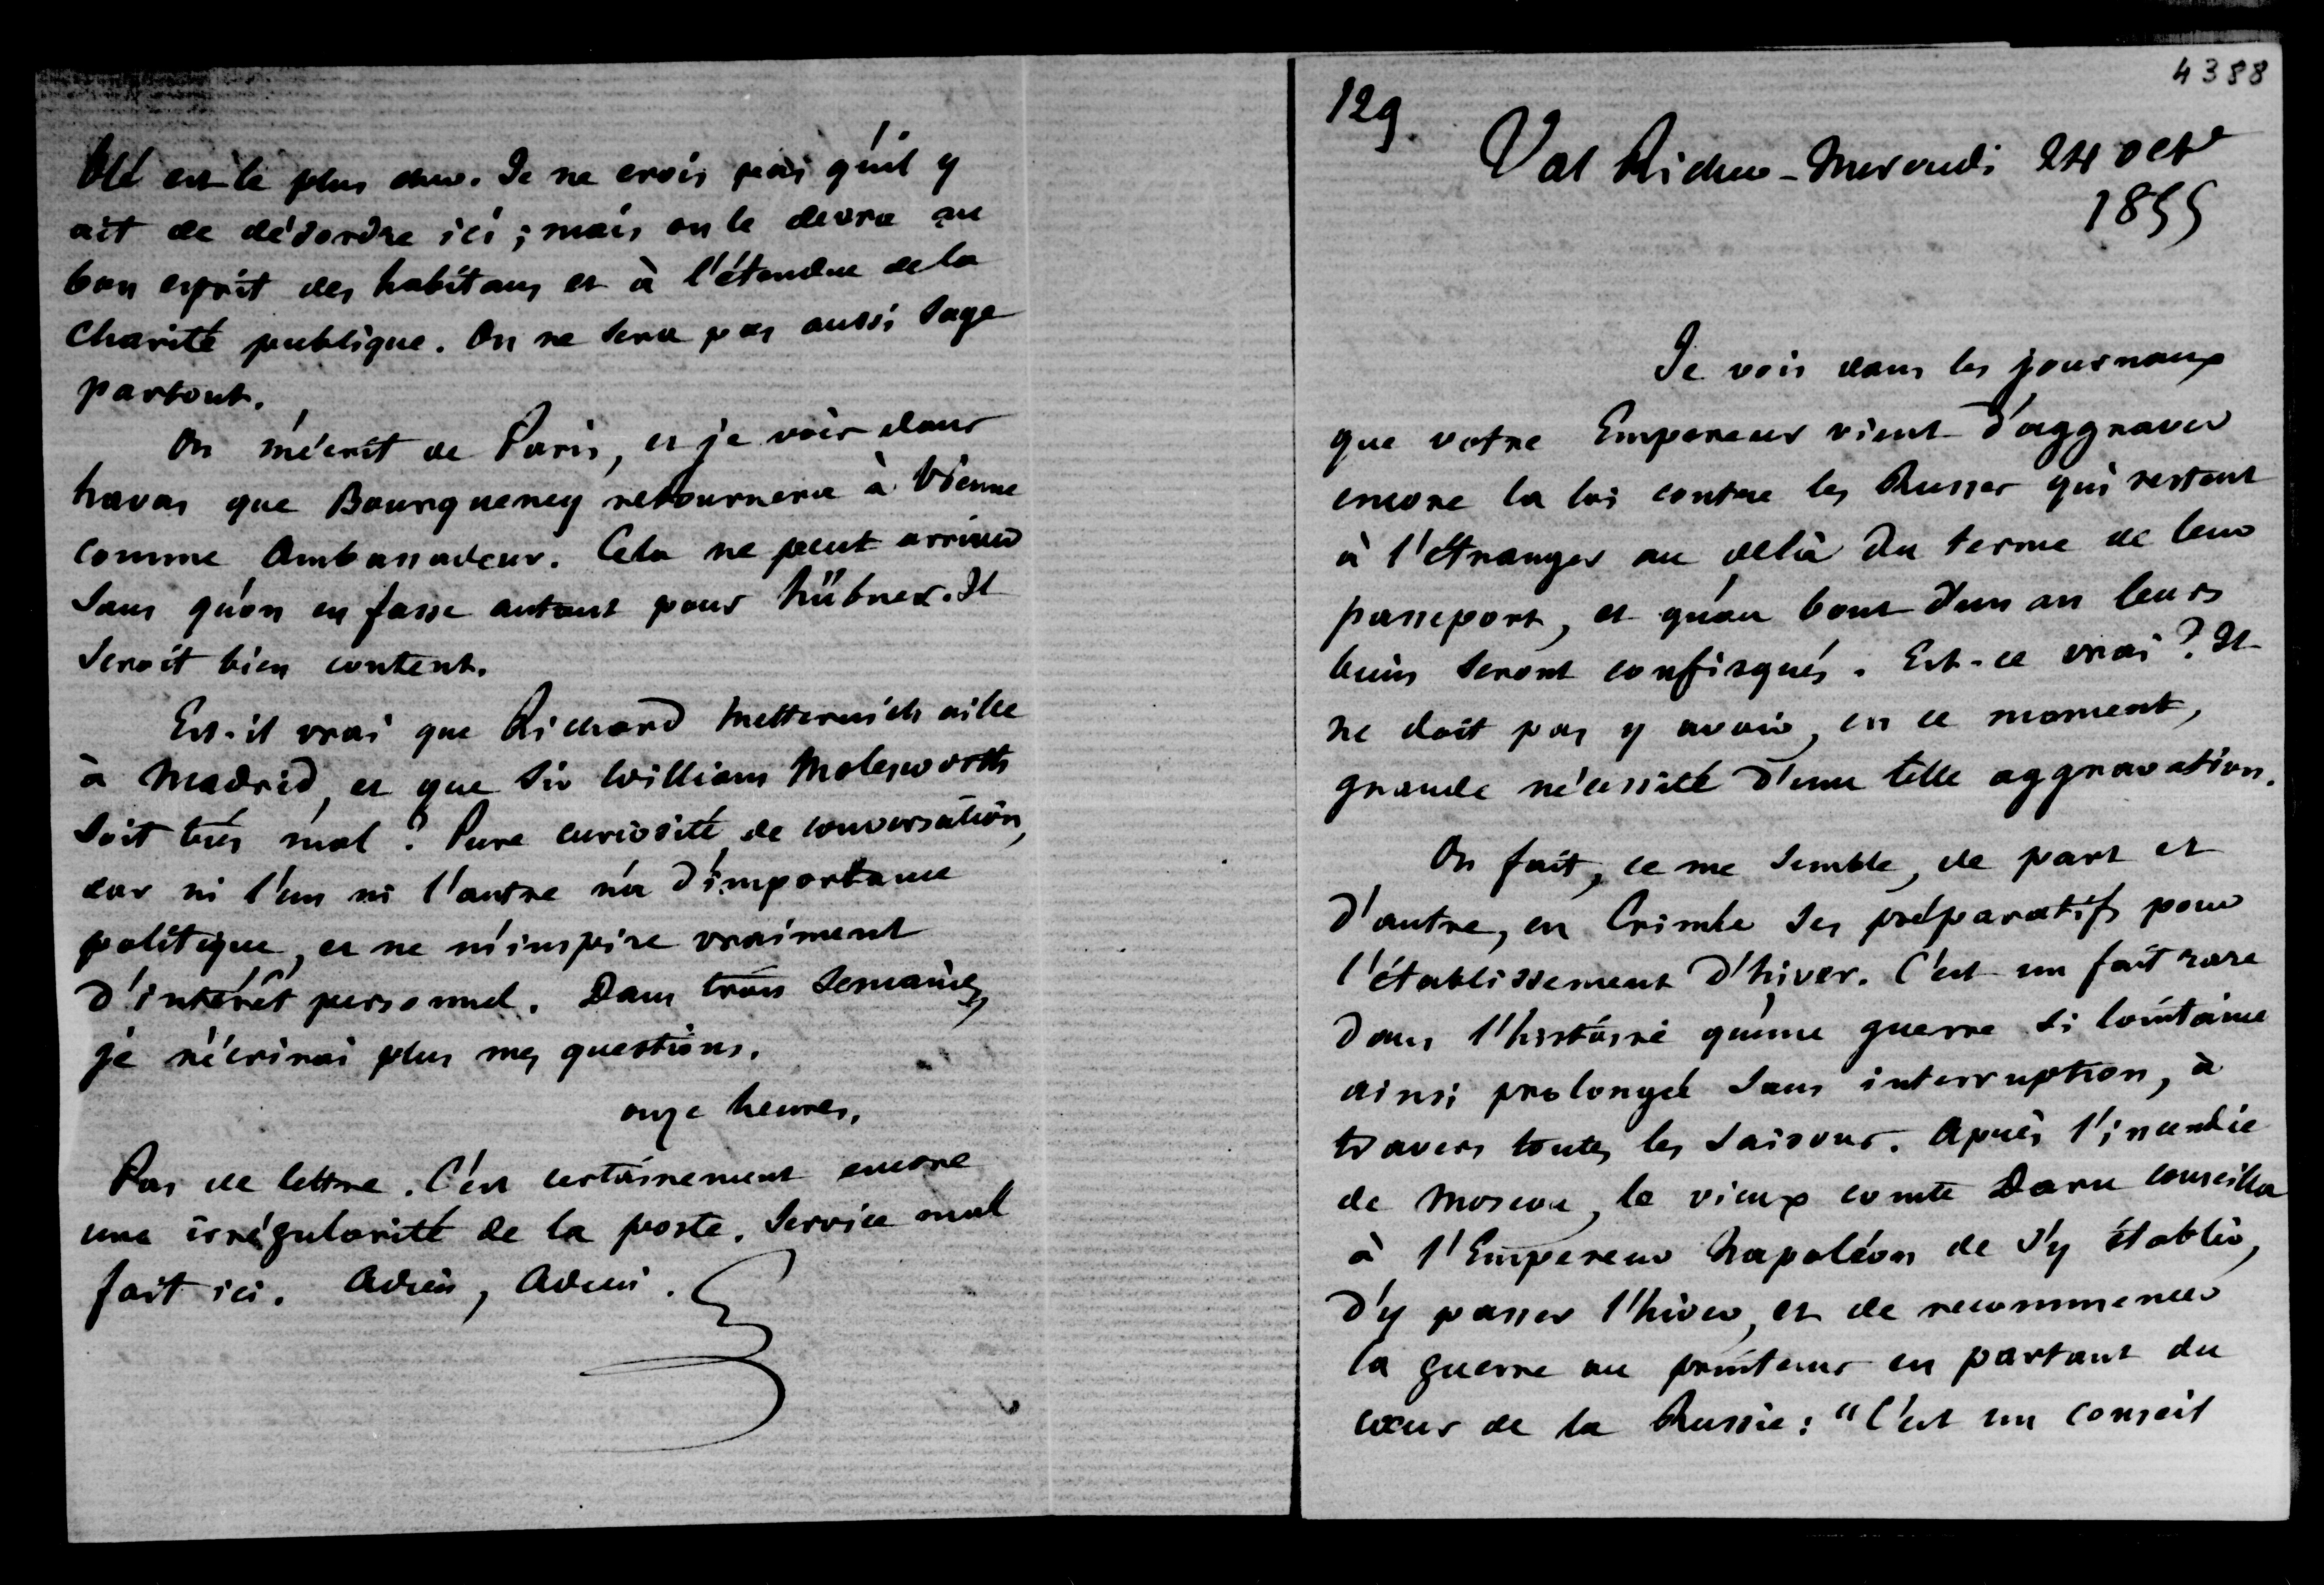 blé est le plus cher. Je ne crois pas qu'il y
ait de désordre ici ; mais on le devra au
bon esprit des habitans et à l'étendue de la
charité publique. On ne sera pas aussi sage
partout.
On m'écrit de Paris, et je vois dans
havas que Bourqueney retournera à Vienne
comme Ambassadeur. Cela ne peut arriver
sans qu'on en fasse autant pour hübner. Il
seroit bien content.
Est-il vrai que Richard Metternich aille
à Madrid, et que Sir William Molesworth
soit très mal ? Pure curiosité de conversation,
car ni l'un ni l'autre n'a d'importance
politique, et ne m'inspire vraiment
d'intérêt personnel. Dans trois semaines,
je n'écrirai plus mes questions.
onze heures.
Pas de lettre. C'est certainement encore
une irrégularité de la poste. Service mal
fait ici. Adieu, Adieu.
4388
129.
Val Richer - Mercredi 24 octe
1855
Je vois dans les journaux
que votre Empereur vient d'aggraver
encore la loi contre les Russes qui restent
à l'étranger au delà du terme de leur
passeport, et qu'au bout d'un an leurs
biens seront confisqués. Est-ce vrai ? Il
ne doit pas y avoir, en ce moment,
grande nécessité d'une telle aggravation.
On fait, ce me semble, de part et
d'autre, en Crimée ses préparatifs pour
l'établissement d'hiver. C'est un fait rare
dans l'histoire qu'une guerre si lointaine
ainsi prolongée sans interruption, à
travers toutes les saisons. Après l'incendie
de Moscou, le vieux comte Daru conseilla
à l'Empereur Napoléon de s'y établir,
d'y passer l'hiver, et de recommencer
la guerre au printems en partant du
cœur de la Russie : "C'est un conseil